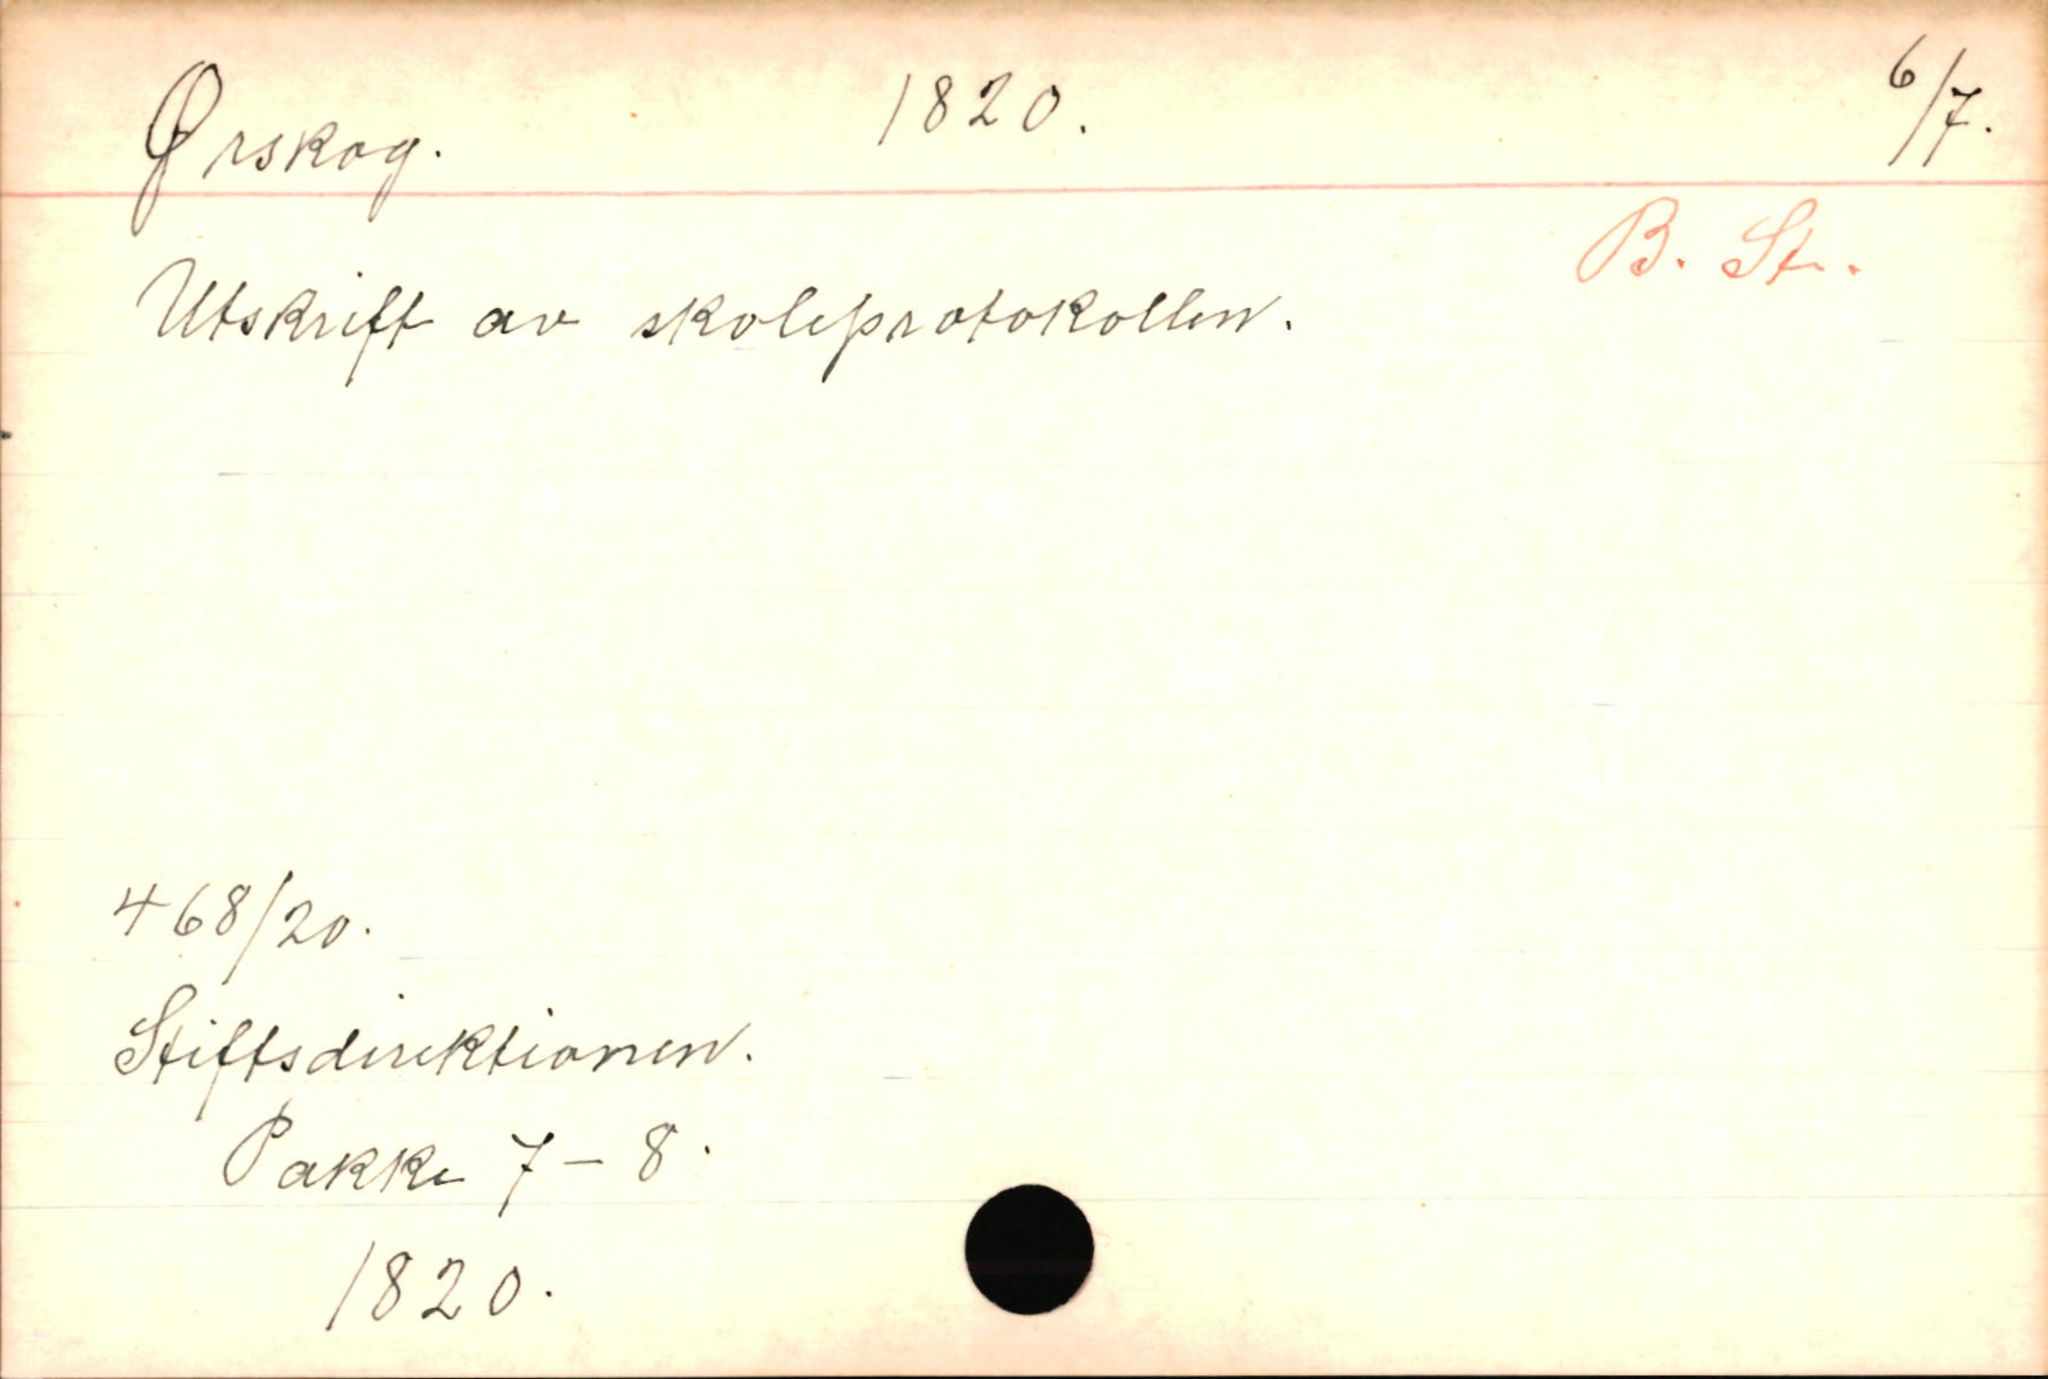 Ørskog. 1820. 6/7.
B. St.
Utskrift av skoleprotokollen.
468/20.
Stiftsdirektionen.
Pakke 7-8.
1820.